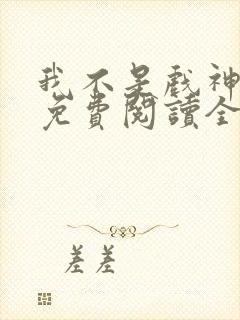 我不是戏神
免费閱讀全
差差